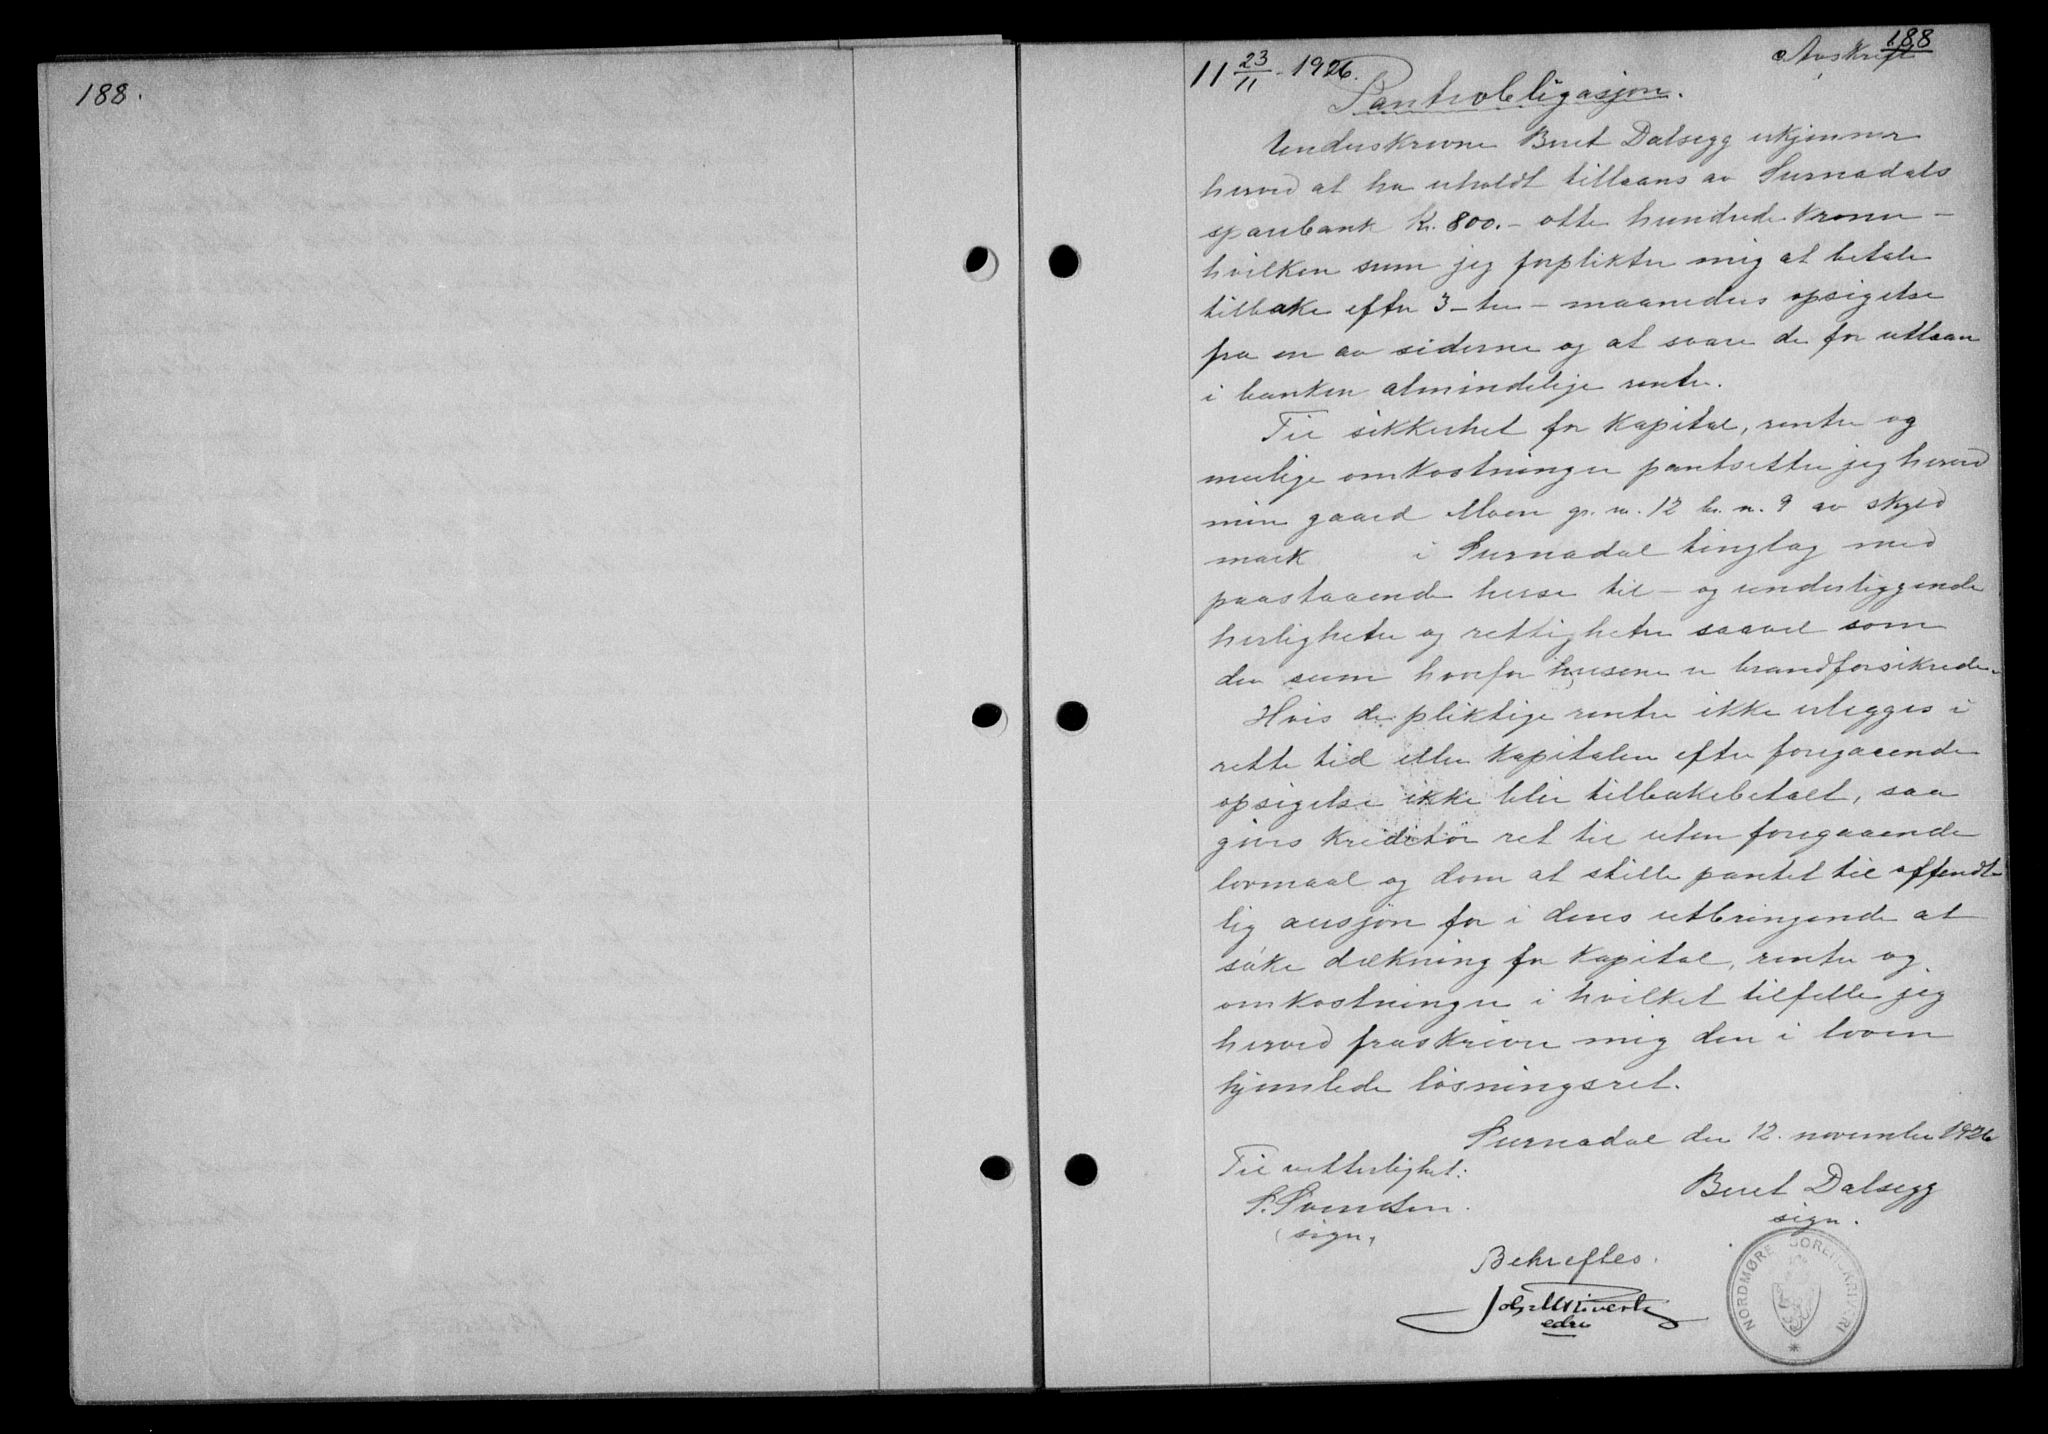 188.
188
Avskrift
11 23/11 - 1926.
Pantobligasjon.
Underskrevne Beret Dalsegg erkjenner
herved at ha erholdt tillaans av Surnadals
sparebank kr. 800.- otte hundrede kroner -
hvilken sum jeg forplikter mig at betale
tilbake efter 3 - tre - maaneders opsigelse
fra en av siderne og at svare de for utlaan
i banken almindelige renter.
Til sikkerhet for kapital, renter og
mulige omkostninger pantsetter jeg herved
min gaard Moen gr. n. 12 br. n. 9 av skyld
mark i Surnadal tinglag med
paastaaende huse til - og underliggende
herligheter og rettigheter saavel som
den sum hvorfor husene er brandforsikrede.
Hvis de pliktige renter ikke erlegges i
rette tid eller kapitalen efter foregaaende
opsigelse ikke blir tilbakebetalt, saa
gives kreditor ret til uten foregaaende
lovmaal og dom at stille pantet til offendt-
lig auksjon for i dens utbringende at
søke dækning for kapital, renter og
omkostninger i hvilket tilfelle jeg
herved fraskriver mig den i loven
hjemlede løsningsret.
Surnadal den 12. november 1926
Til vitterlighet:
Beret Dalsegg
sign.
S. Svendsen.
(sign.
Bekreftes.
edsv
NORDMØRE SORENSKRIVERI